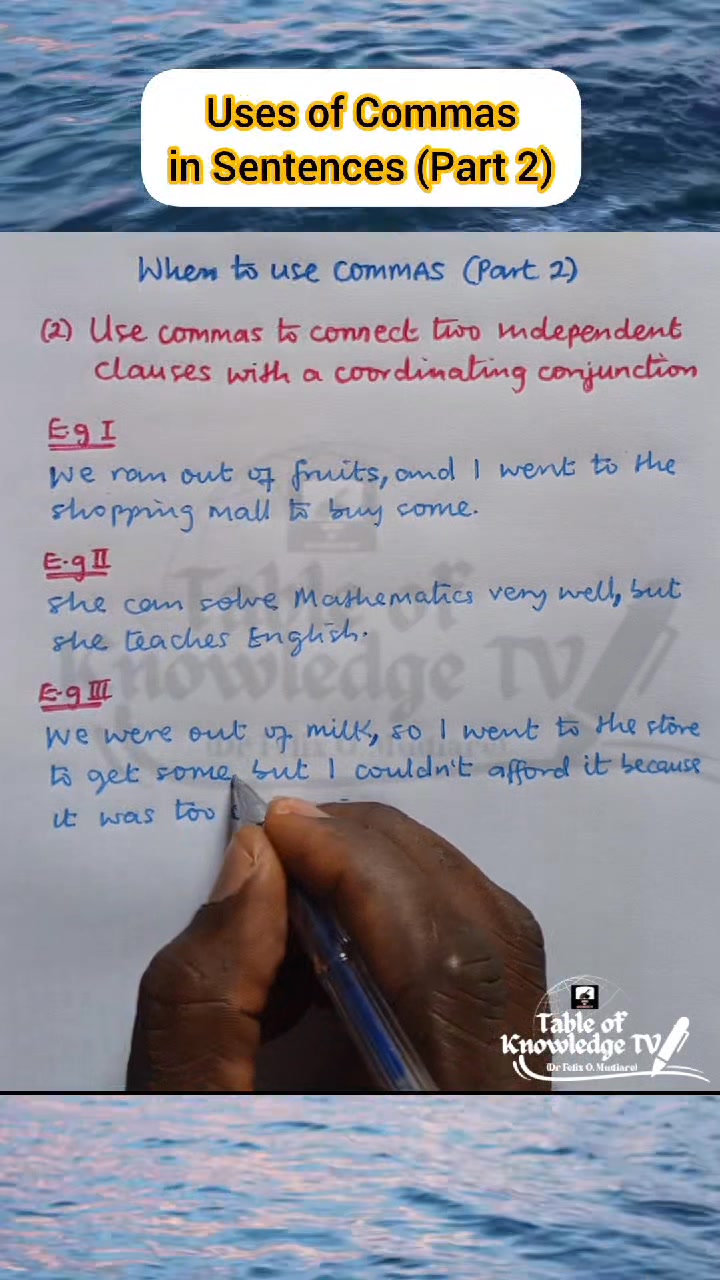 Uses of Commas
in Sentences (Part 2)
When to use COMMAS (Part 2)
(2) Use commas to connect two independent
clauses with a coordinating conjunction
E.g I
We ran out of fruits, and I went to the
shopping mall to buy some.
E.g II
She can solve Mathematics very well, but
she teaches English.
E.g III
We were out of milk, so I went to the store
to get some, but I couldn't afford it because
it was too
Table of
Knowledge TV
(Dr Felix O. Mudiare)
Table of
Knowledge TV
(Dr Felix O. Mudiare)